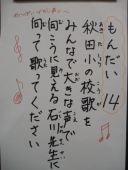 もんだい 14
秋田小の校歌を
みんなで大きな声で
向こうに見える石川先生に
向って歌ってください